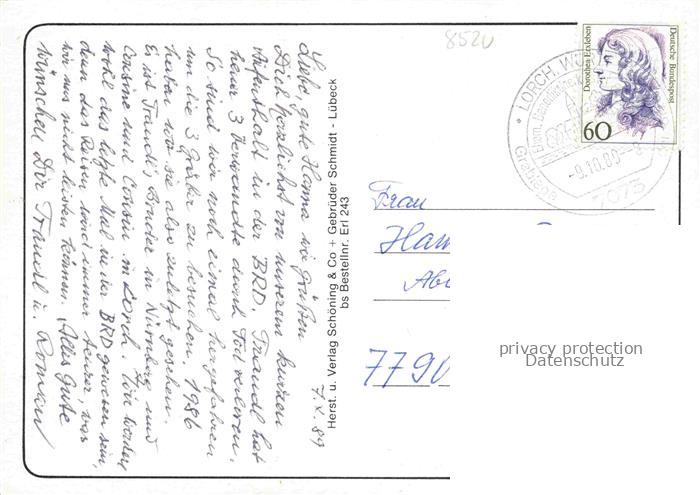 7.X.89
Liebe, gute Hanna wir grüßen
Dich herzlichst von unserem kurzen
Aufenthalt in der BRD. Traudl hat
heuer 3 Verwandte durch Tod verloren.
So sind wir noch einmal hergefahren
um die 3 Gräber zu besuchen. 1986
haben wir sie also zuletzt gesehen.
Es ist Traudl's Bruder in Nürnberg und
Cousine und Cousin in Lorch. Wir werden
wohl das letzte Mal in der BRD gewesen sein,
denn das Reisen wird immer teurer, was
wir uns nicht leisten können. Alles Gute
wünschen Dir Traudl u. Roman
Herst. u. Verlag Schöning & Co + Gebrüder Schmidt - Lübeck
bs Bestellnr. Erl 243
8520
LORCH, WÜ
Grablege
-9.10.
7073
Dorothea Erxleben
Deutsche Bundespost
60
Frau
Han
7790
privacy protection
Datenschutz